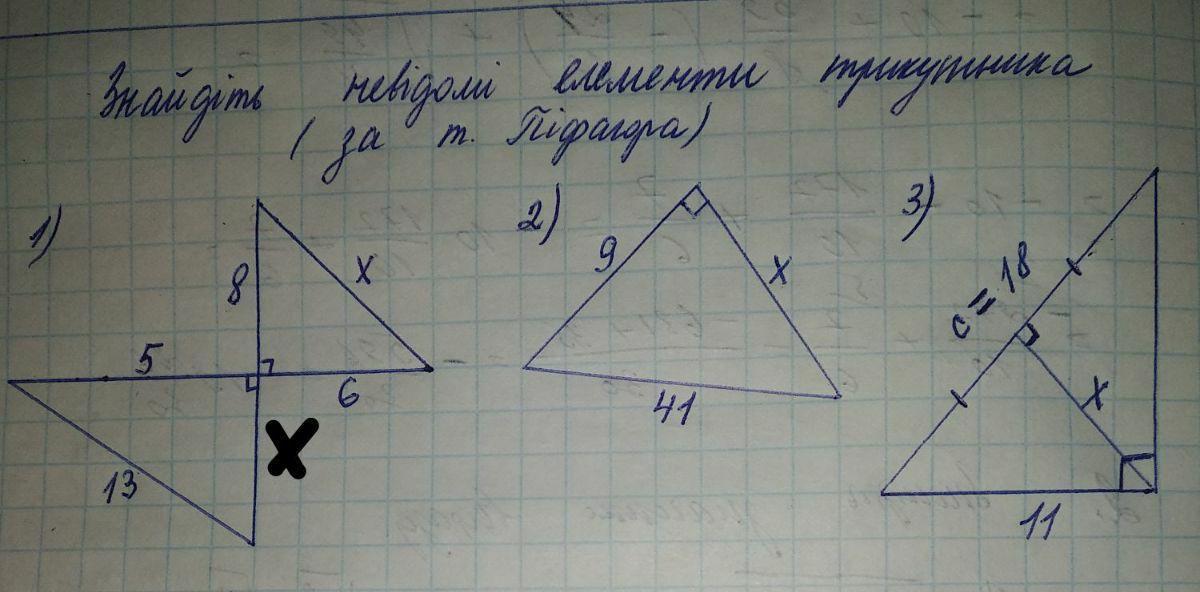 Знайдіть невідомі елементи трикутника
(за т. Піфагора)
1)
8
x
5
6
X
13
2)
9
x
41
3)
c = 18
x
11